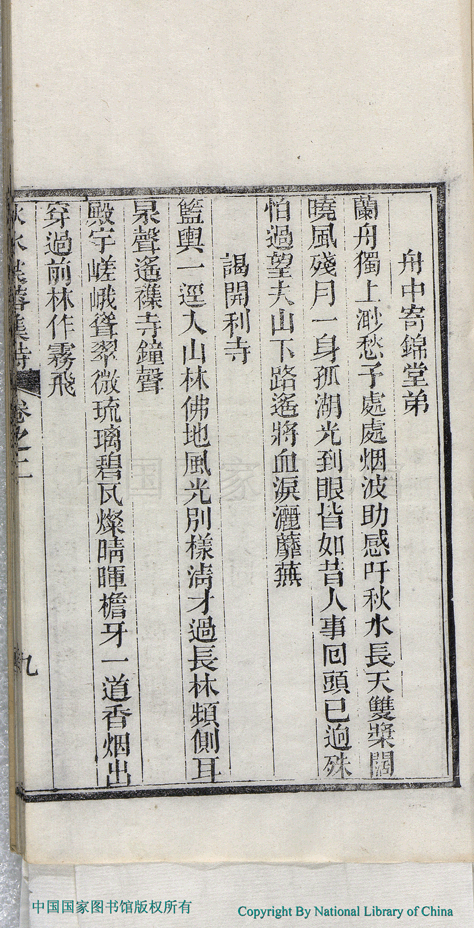 舟中寄錦堂弟
蘭舟獨上渺愁予處處烟波助感吁秋水長天雙槳闊
曉風殘月一身孤湖光到眼皆如昔人事回頭已逈殊
怕過望夫山下路遙將血淚灑蘼蕪
謁開利寺
籃輿一逕入山林佛地風光別樣淸才過長林頻側耳
泉聲遙襍寺鐘聲
殿宇嵯峨聳翠微琉璃碧瓦燦晴暉檐牙一道香烟出
穿過前林作霧飛
秋水芙蓉集詩 卷之二 九
中国国家图书馆版权所有
Copyright By National Library of China